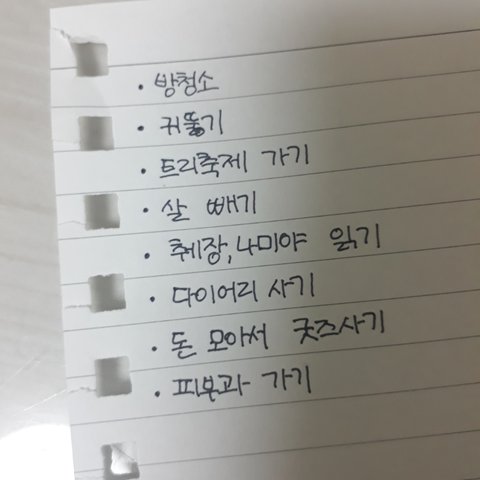 · 방청소
· 귀뚫기
· 트리축제 가기
· 살 빼기
· 췌장, 나미야 읽기
· 다이어리 사기
· 돈 모아서 굿즈사기
· 피부과 가기